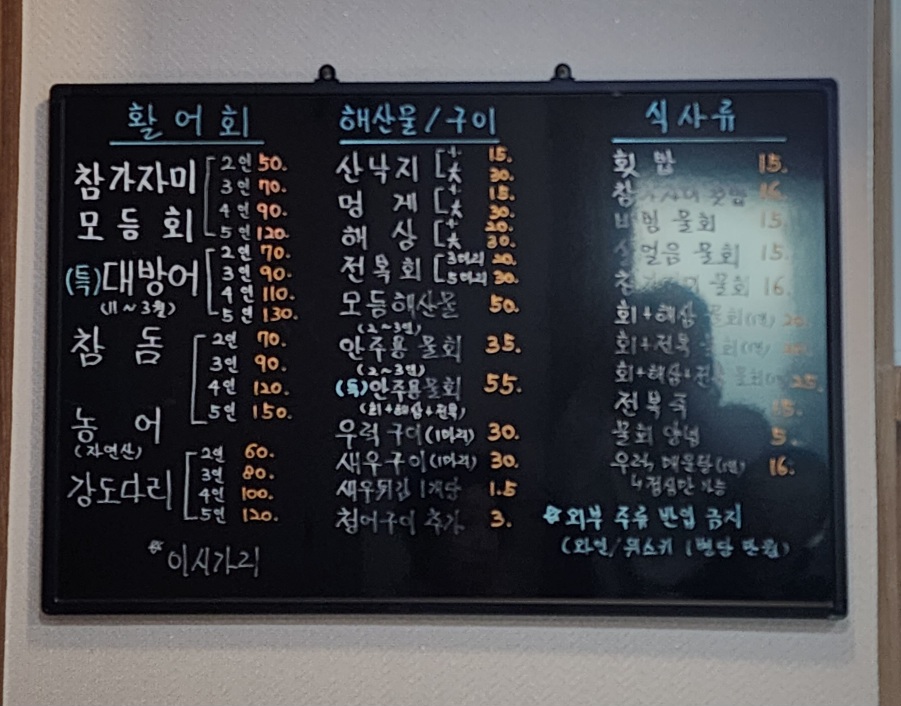 활어회
참가자미
모듬회
2인 50.
3인 70.
4인 90.
5인 120.
(특)대방어
(11~3월)
2인 70.
3인 90.
4인 110.
5인 130.
참돔
농어
(자연산)
2인 70.
3인 90.
4인 120.
5인 150.
강도다리
2인 60.
3인 80.
4인 100.
5인 120.
※이시가리
해산물/구이
산낙지 小 15.
大 30.
멍게 小 15.
大 30.
해삼 小 20.
大 30.
전복회 3마리 20.
5마리 30.
모듬해산물 50.
(2~3인)
안주용 물회 35.
(2~3인)
(특)안주용물회 55.
(회+해삼+전복)
우럭구이(1마리) 30.
새우구이(1마리) 30.
새우튀김 1개당 1.5
청어구이 추가 3.
식사류
횟밥 15.
참가자미 횟밥 16.
비빔 물회 15.
살얼음 물회 15.
참가자미 물회 16.
회+해삼 물회(1인) 20.
회+전복 물회(1인)
회+해삼+전복 물회(1인) 25.
전복죽 15.
물회 양념 5.
우럭매운탕(1인) 16.
↳점심만 가능
※외부 주류 반입 금지
(와인/위스키 1병당 만원)